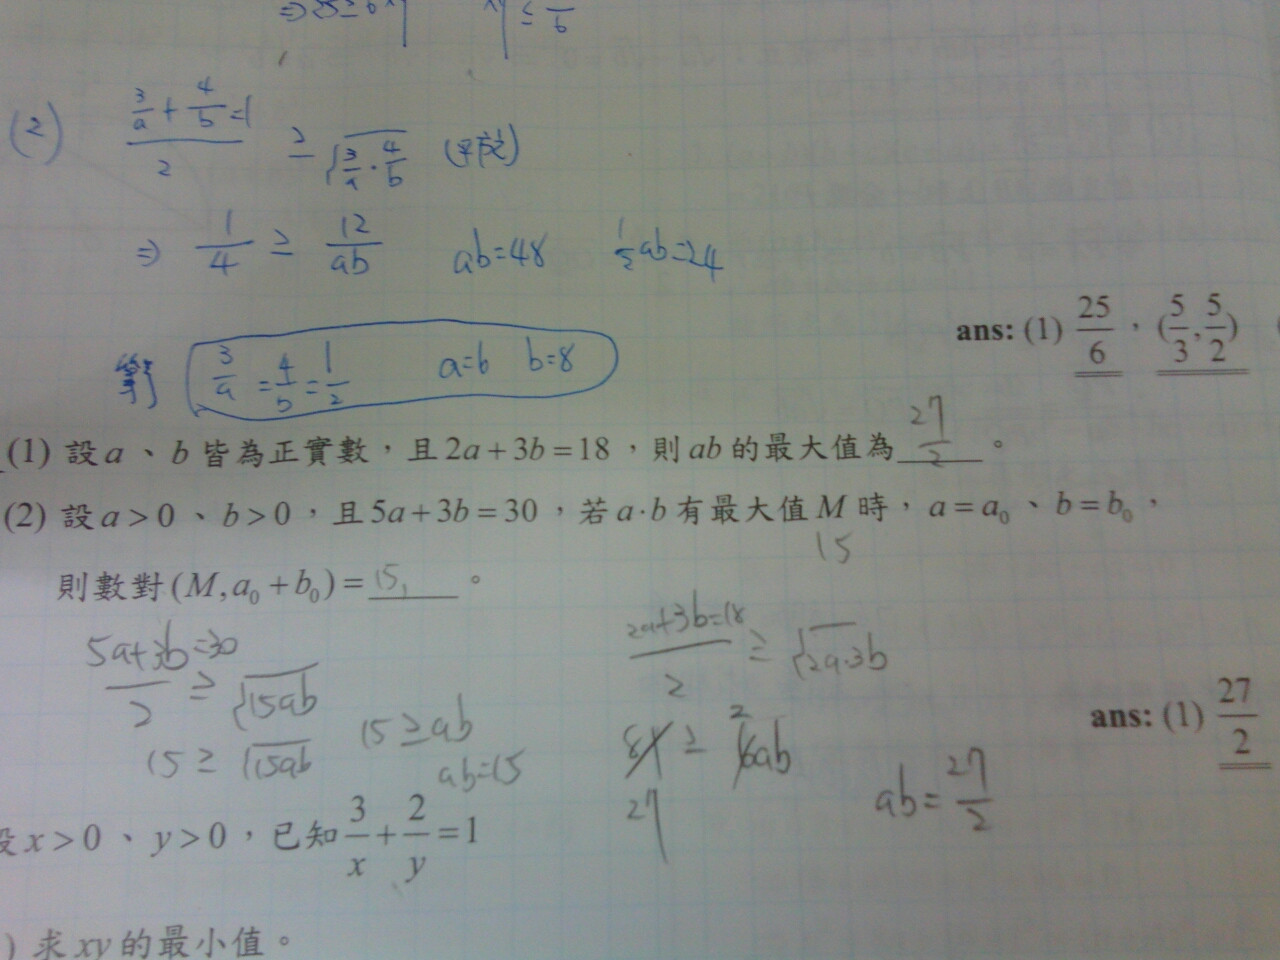 ⇒ 25 ≥ 6xy xy ≤ /6
(2) (3/a + 4/b = 1)/2 ≥ √(3/a · 4/b)
⇒ 1/4 ≥ 12/ab ab=48 1/2 ab=24
ans: (1) 25/6 , (5/3, 5/2)
3/a = 4/b = 1/2 a=6 b=8
(1) 設 a 、 b 皆為正實數,且 2a+3b=18,則 ab 的最大值為 27/2 。
(2) 設 a>0 、 b>0,且 5a+3b=30,若 a·b 有最大值 M 時, a=a₀ 、 b=b₀,
15
則數對 (M, a₀+b₀)= 15, 。
(5a+3b=30)/2 ≥ √15ab
15 ≥ √15ab
15 ≥ ab
ab=15
(2a+3b=18)/2 ≥ √2a·3b
81 ≥ 6ab
2
27
ab = 27/2
ans: (1) 27/2
設 x>0 、 y>0,已知 3/x + 2/y = 1
) 求 xy 的最小值。